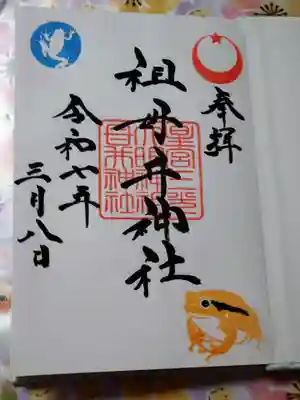 奉拝
祖母井神社
令和七年
三月八日